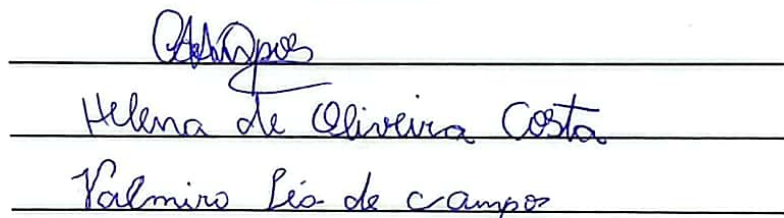 Helena de Oliveira Costa
Valmiro Léo de Campos